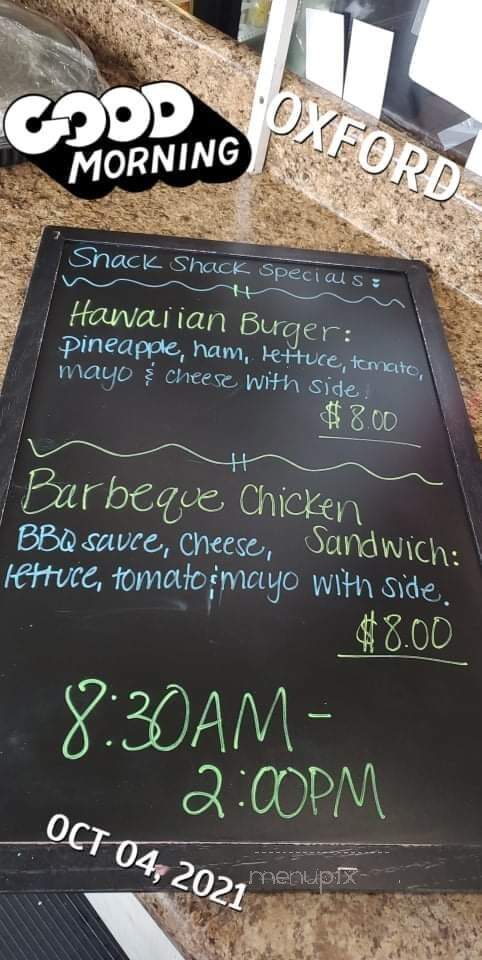 GOOD
MORNING
OXFORD
Snack Shack Specials:
Hawaiian Burger:
pineapple, ham, lettuce, tomato,
mayo & cheese with side!
$8.00
Barbeque Chicken
Sandwich:
BBQ sauce, cheese,
lettuce, tomato & mayo with side.
$8.00
8:30AM-
2:00PM
OCT 04, 2021
menupix